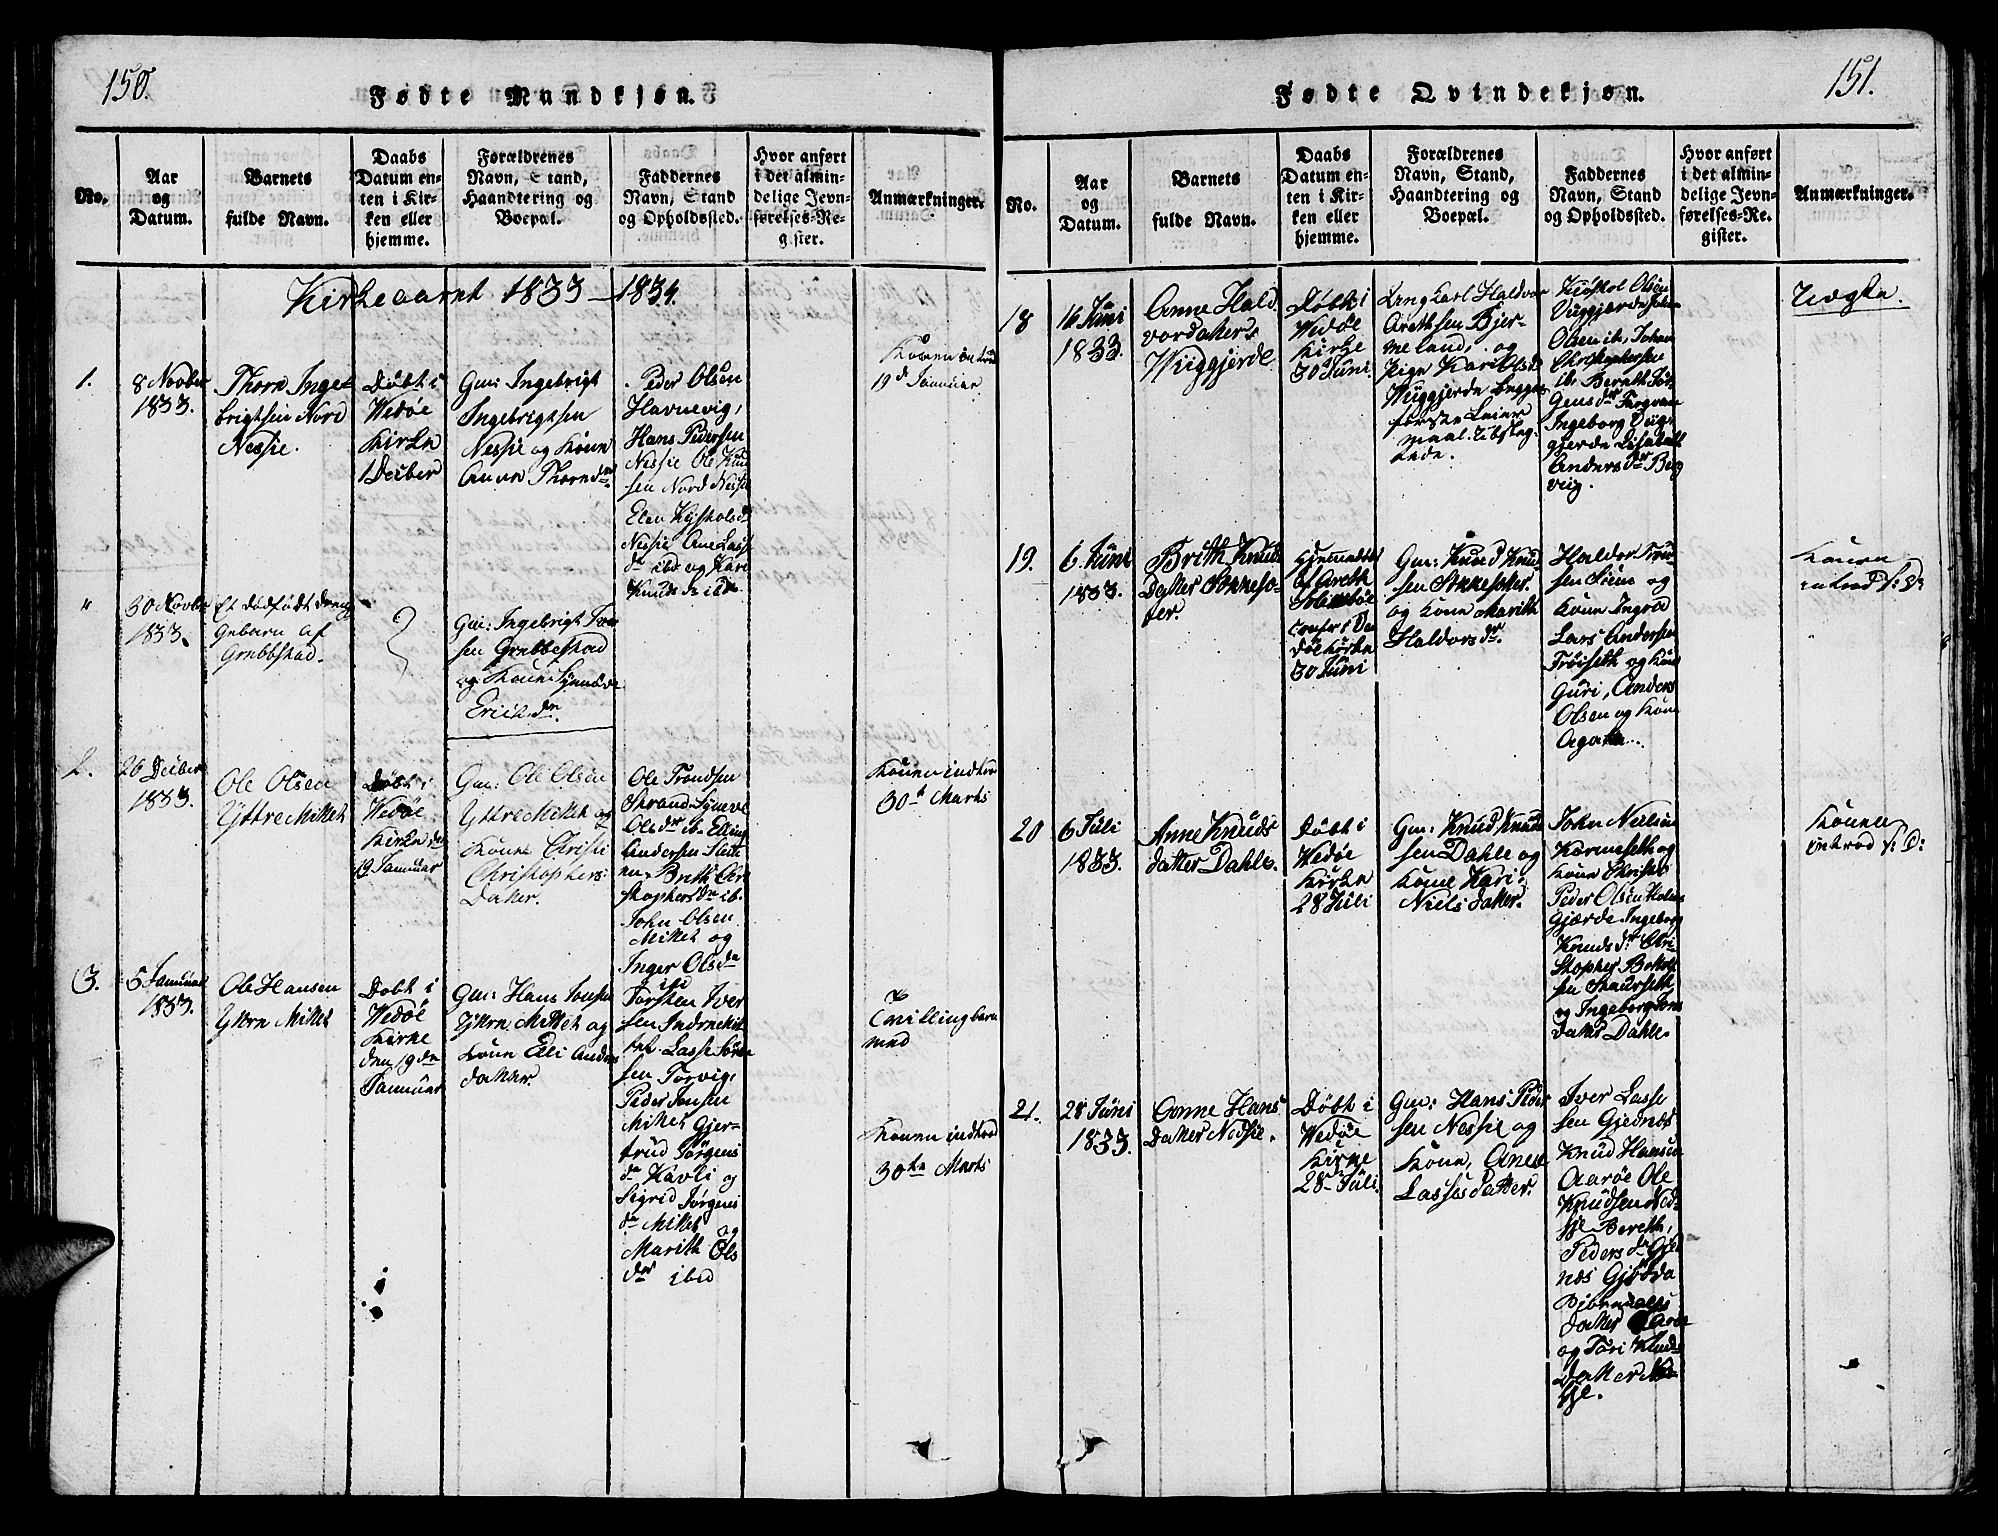 150.
Fødte Mandkjøn.
No.
Aar
og
Datum.
Barnets
fulde Navn.
Daabs
Datum en-
ten i Kir-
ken eller
hjemme.
Forældrenes
Navn, Stand,
Haandtering og
Boepæl.
Faddernes
Navn, Stand
og Opholdssted.
Hvor anført
i det almin-
delige Jevn-
førelses-Re-
gister.
Anmærkninger.
Kirkeaaret 1833-1834.
1.
8 Novber
1833.
Thorn Inge
brigtsen Nord
Nessie.
Døbt i
Wedøe
Kirke
1 Decber
Gm: Ingebrigt
Ingebrigtsen
Nessie og Kone
Anne Thorn dr
Peder Olsen
Havnevig,
Hans Pedersen
Nessie Ole Knu
sen Nord Nessie
Elen
Nessie Ane Lasse
dr ibd og Kari
Knuds dr ibd
Konen introd
19d Januar
"
30 Novbr
1833.
Et dødfødt dreng
gebarn af
Grebbstad.
Gm: Ingebrigt
sen Grebbestad
og Kone
Erich dr
2.
26 Decber
1833.
Ole Olsen
Yttre Mittet
Døbt i
Wedøe
Kirke den
19 Januar
Gm: Ole Olsen
Yttre Mittet og
Kone Christi
Christophers
datter.
Ole Trondsen
Strand Synneve
Ols dr ib. Elling
Andersen
Brith Chri
stophers dr ib.
John Olsen
Mittet og
Inger Ols dr
ibd
Konen indtrod
30te Marts
3.
5 Januar
1833.
Ole Hansen
Yttre Mittet
Døbt i
Wedøe
Kirke
den 19de
Januar
Gm: Hans Jonsen
Yttre Mittet og
Kone Elli Anders
datter.
Torsten Iver
sen Indre Mit
tet Lasse Sørn
sen Torvig,
Peder Jonsen
Mittet Gjer-
trud Jørgens
dr Havli og
Sigrid Jørgens
dr Mittet
og
Marith Ols
dr ibd
Tvillingbarn
med
Konen indtrod
30te Marts
151.
Fødte Qvindekjøn.
No.
Aar
og
Datum.
Barnets
fulde Navn.
Daabs
Datum en-
ten i Kir-
ken eller
hjemme.
Forældrenes
Navn, Stand,
Haandtering og
Boepæl.
Faddernes
Navn, Stand
og Opholdssted.
Hvor anført
i det almin-
delige Jevn-
førelses-Re-
gister.
Anmærkninger.
18
16 Juni
1833.
Anne Hald
vordatters
Wiiggjerde
Døbt i
Wedøe
Kirke
30 Juni.
Ung Karl Haldvor
Arethsen Bjer-
meland, og
Pige Kari Ols dr
Wiiggjerde begges
første Leier
maal.
Olsen ib, Johan
Christophersen
ib Bereth Jør
gens dr
Ingeborg
gjerde Lisabeth
Anders dr
vig.
Uægte.
19.
6 Juni
1833.
Brith Knuds
datter
Hjemmedøbt
af Areth
Kirke
30 Juni
Gm: Knud Knud
sen
og Kone Marith
Haldors dr
Haldor
sen og
Kone Ingrid
Lars Andersen
Trøiseth og Kone
Guri, Anders
Olsen og Kone
Agathe.
Konen
introd s: D:
20
6 Juli
1833.
Anne Knuds
datter Dahle.
Døbt i
Wedøe
Kirke
28 Juli
Gm: Knud Knud
sen Dahle og
Kone Kari
Niels datter.
John Nielsen
og
Kone Christi
Peder Olsen
Gjærde Ingeborg
Knuds dr Chri-
stopher
sen
og Ingeborg Jons
datter Dahle.
Konen
introd s: D:
21.
28 Juni
1833.
Anne Hans
datter Nedsie.
Døbt i
Wedøe
Kirke
28 Juli.
Gm: Hans Peder
sen Nessie og
Kone, Anne
Lasses datter.
Iver Lasse
sen Gjednæs
Knud Hansen
Aarøe Ole
Knudsen Ned-
sje Bereth
Peders dr Gjed
næs Gjødda
datter Aarøe
og Tori Knuds
datter Ned
sje.